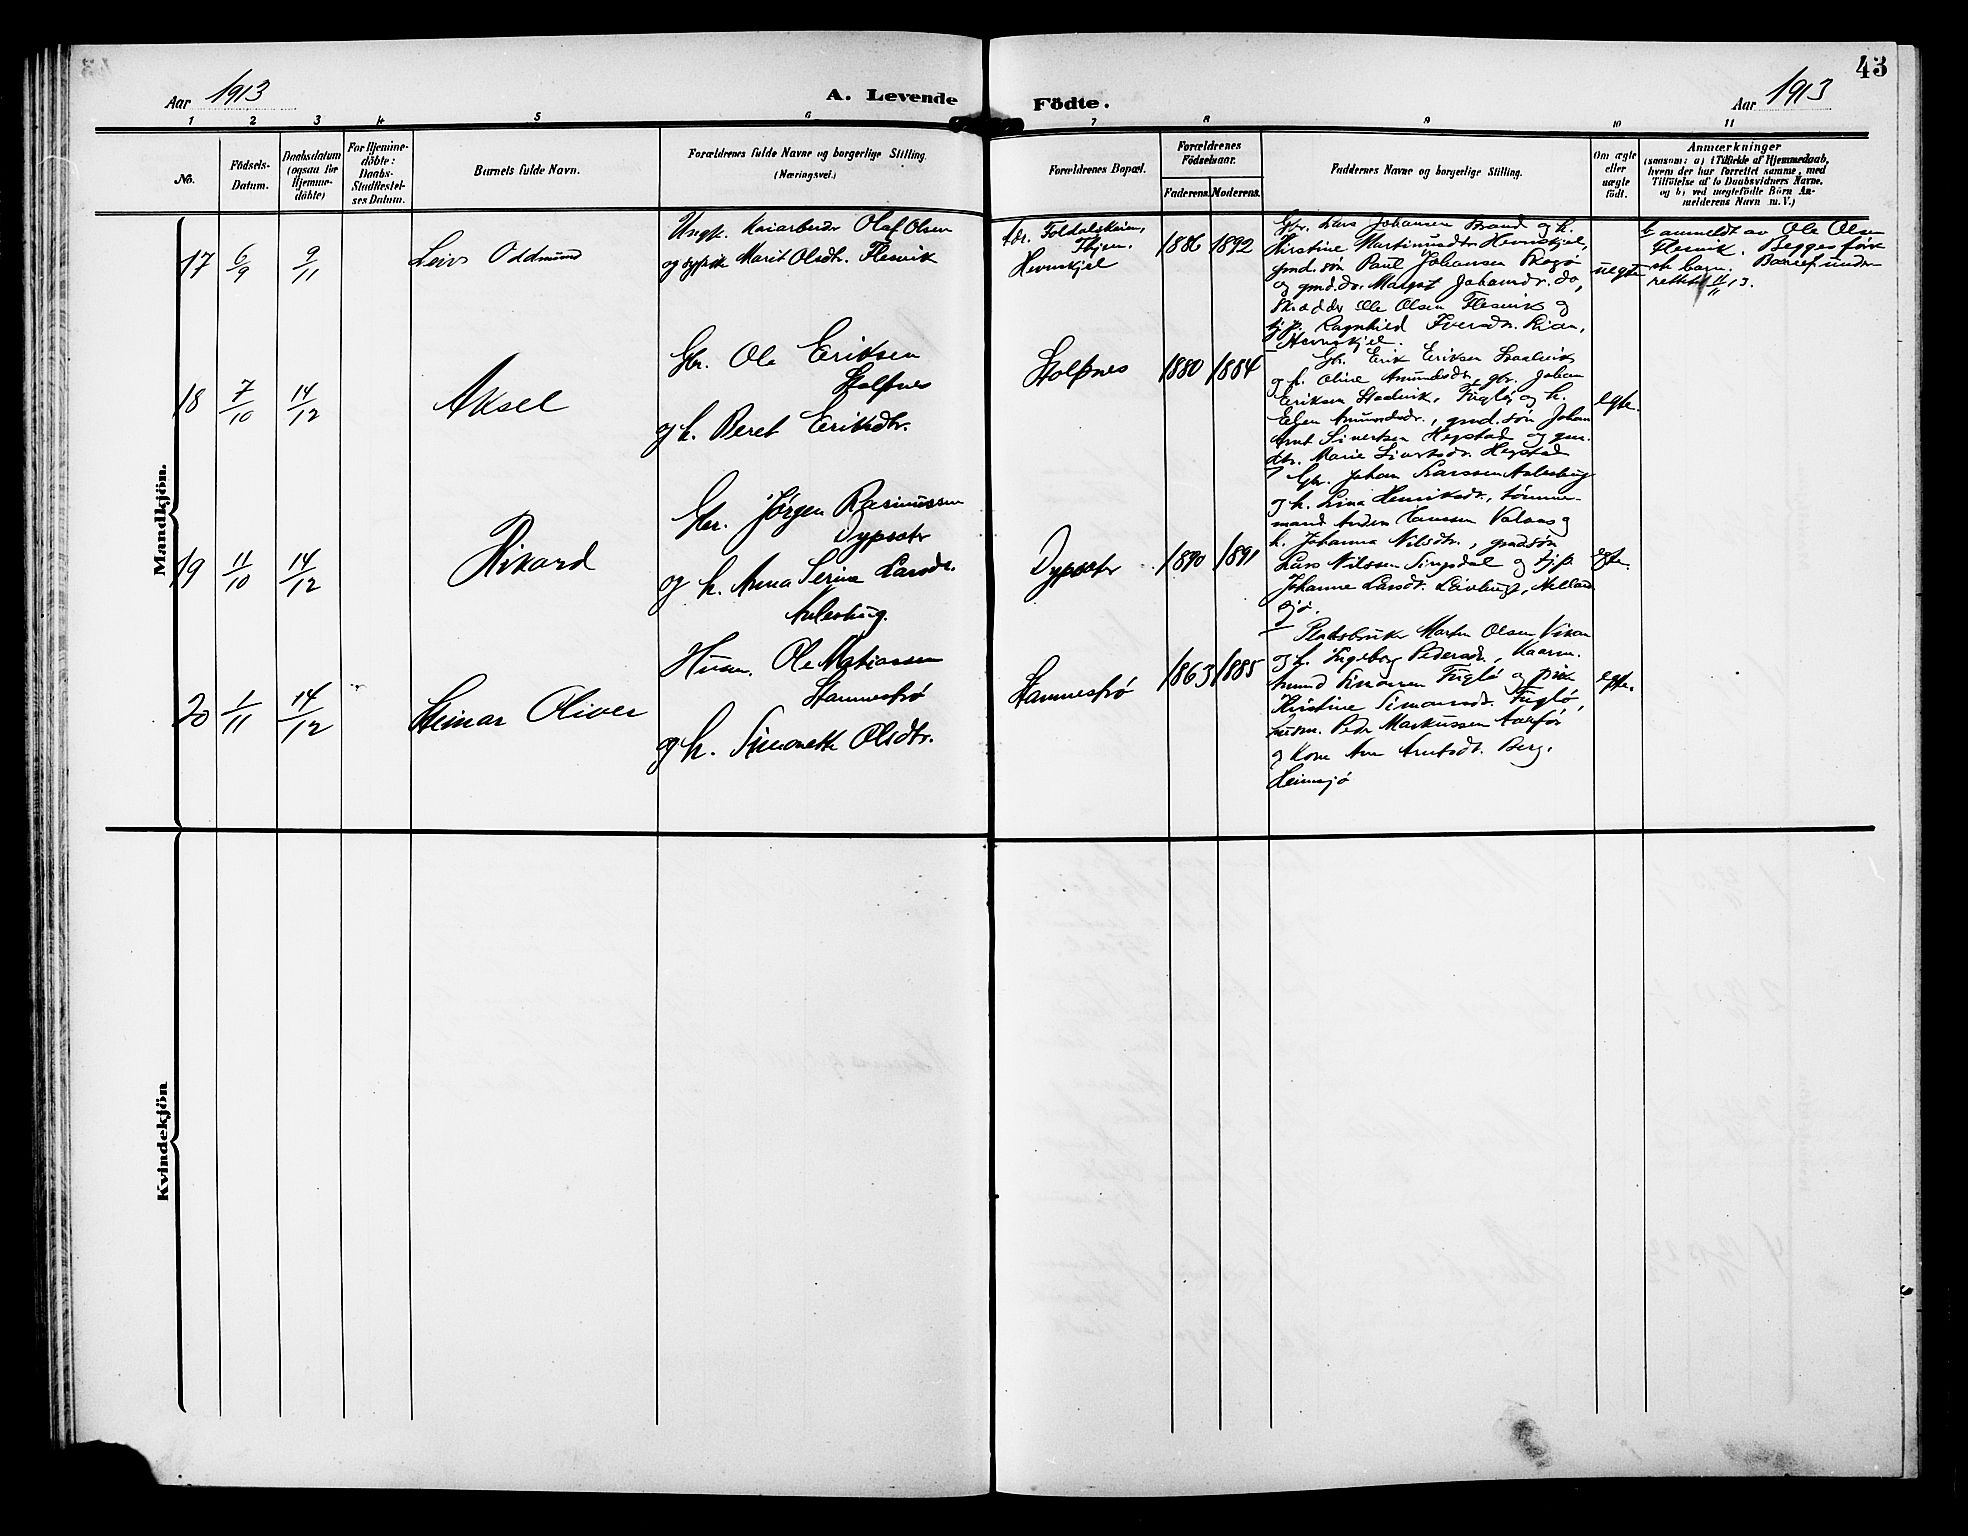 43
Aar 1913
A. Levende Födte.
Aar 1913
1 2 3 4 5 6 7 8 9 10 11
No.
Födsels-
Datum.
Daabsdatum
(ogsaa for
Hjemme-
döbte)
For Hjemme-
döbte:
Daabs-
Stadfæstel-
ses Datum.
Barnets fulde Navn.
Forældrenes fulde Navne og borgerlige Stilling.
(Næringsvei.)
Forældrenes Bopæl.
Forældrenes
Födselsaar.
Faderens. Moderens.
Faddernes Navne og borgerlige Stilling.
Om ægte
eller
uægte
födt.
Anmærkninger
(saasom: a) i Tilfælde af Hjemmedaab,
hvem der har forrettet samme, med
Tilföielse af to Daabsvidners Navne,
og b) ved uegtefödte Börn An-
melderens Navn m. V.)
Mandkjön.
17 6/9 9/11
Leiv Oddmund
Ungk. Olaf Olsen
og Marit Olsdtr. Flesvik
Hevnskjel
1886 1892
Gbr. Lars Johansen Strand og h.
Kirstine Martinusdtr. Hevnskjel,
gmd. søn Paul Johansen Skogø
og gmd.dr. Margit Johansdr. do,
Skrædder Ole Olsen Flesvik og
pi. Ragnhild Iversdtr.
Hevnskjel.
uegte
b anmeldt av Ole Olsen
Flesvik. Begges første
barn. under
rettet 11/11 13.
18 7/10 14/12
Aksel
Gbr. Ole Eriksen
Stolpnes
og h. Beret Eriksdtr.
Stolpnes
1880 1884
Gbr. Erik Eriksen
og h. Oline Amundsdtr., gbr. Johan
Eriksen, Fuglø og h.
Elen Amundsdtr., gmd. søn Johan
Arnt Sivertsen Hegstad og gm.
dtr. Marie Sivertsdtr. Hegstad
egte.
19 11/10 14/12
Rikard
Gbr. Jørgen Rasmussen
Dypsetr
og h. Anna Serine Larsdr.
Dypsetr
1890 1891
Gbr. Johan Larssen
og h. Lina Henriksdtr., tømmer-
mand Anders Hanssen og
h. Johanna Nilsdtr., gmdsøn
Lars Nilssen Singsdal og pi.
Johanne Larsdt.
sjø.
egte.
20 1/11 14/12
Steinar Oliver
Husm. Ole Matiassen
Stamnestrø
og h. Simonette Olsdtr.
Stamnestrø
1863 1885
Pladsbruker Martin Olsen Vikan
og h. Ingeborg Pedersdt.,
Amund Simonsen Fuglø og pike
Kirstine Simonsdt. Fuglø,
husm. Peder Markussen
og Kone Ane Arntsdt. Berg,
Heimsjø
egte.
Kvindekjön